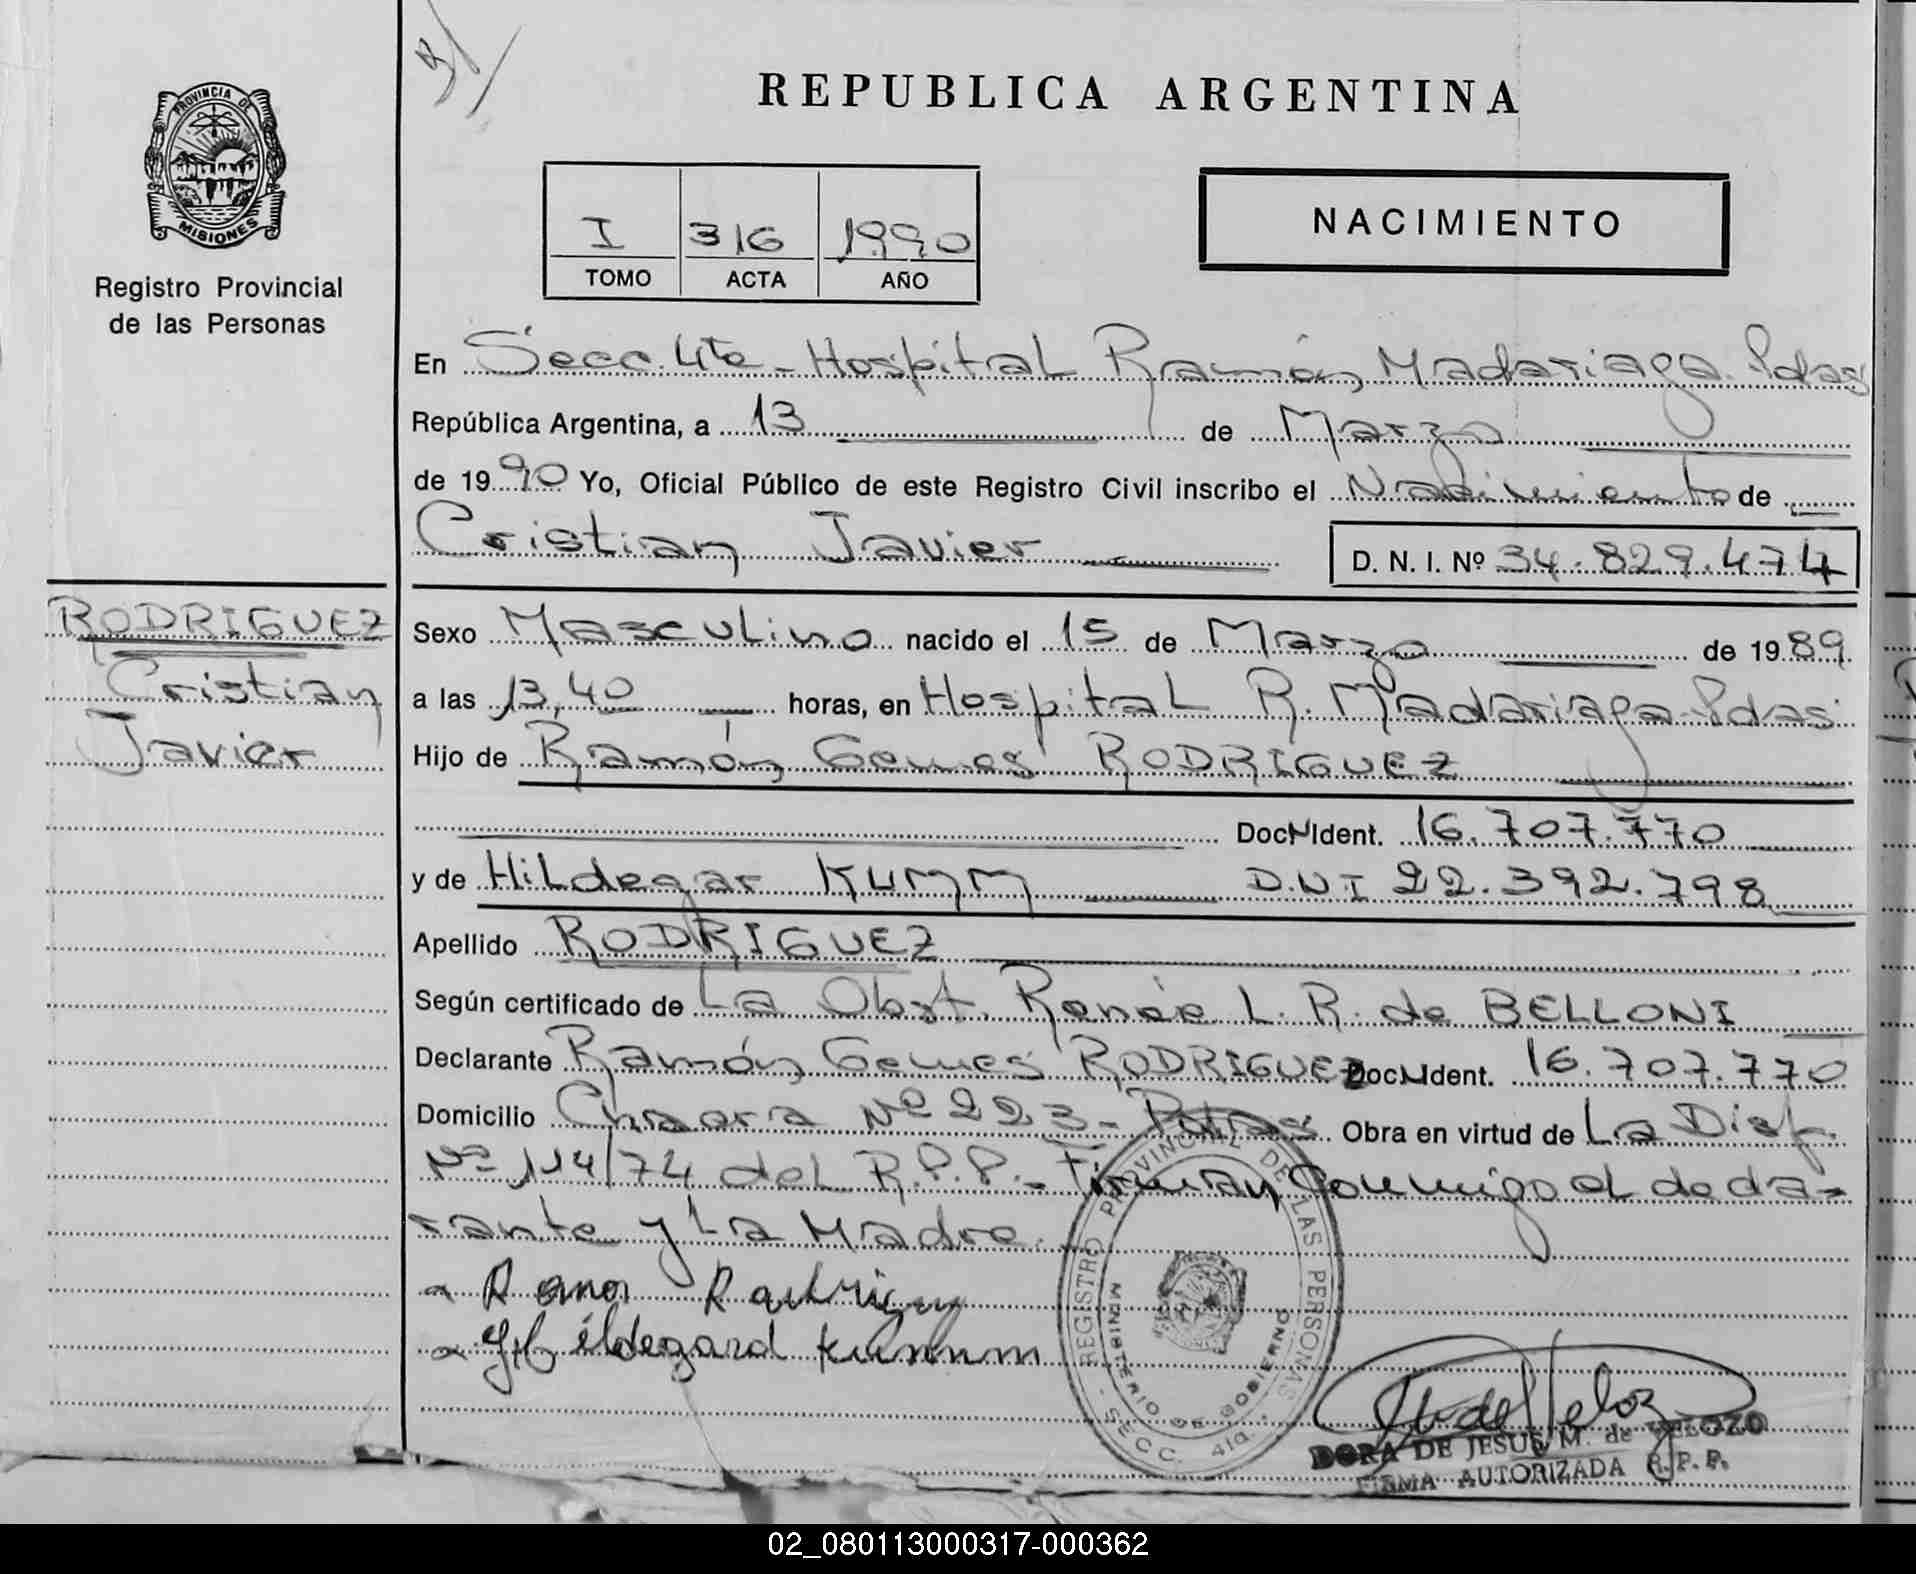 REPUBLICA ARGENTINA
PROVINCIA DE
MISIONES
Registro Provincial
de las Personas
I 316 1990
TOMO ACTA AÑO
NACIMIENTO
En Secc. 4ta - Hospital Ramón Madariaga. Pdas
República Argentina, a 13 de Marzo
de 1990 Yo, Oficial Público de este Registro Civil inscribo el Nacimiento de
Cristian Javier D. N. I. Nº 34.829.474
RODRIGUEZ
Cristian
Javier
Sexo Masculino nacido el 15 de Marzo de 1989
a las 13,40 horas, en Hospital R. Madariaga-Pdas
Hijo de Ramón Gemes RODRIGUEZ
Doc N Ident. 16.707.770
y de Hildegar KUMM D.N.I 22.392.798
Apellido RODRIGUEZ
Según certificado de La Obst. Renée L. R. de BELLONI
Declarante Ramón Gemes RODRIGUEZ Doc N Ident. 16.707.770
Domicilio Chacra Nº 223 - Pdas Obra en virtud de La Disp.
Nº 114/74 del R.P.P. - Firman Conmigo el decla-
rante y La Madre.
Ramon
Kumm
REGISTRO PROVINCIAL DE LAS PERSONAS
MINISTERIO DE GOBIERNO
SECC. 4ta.
DORA DE JESUS M. de VELOZO
FIRMA AUTORIZADA R.P.P.
02_080113000317-000362